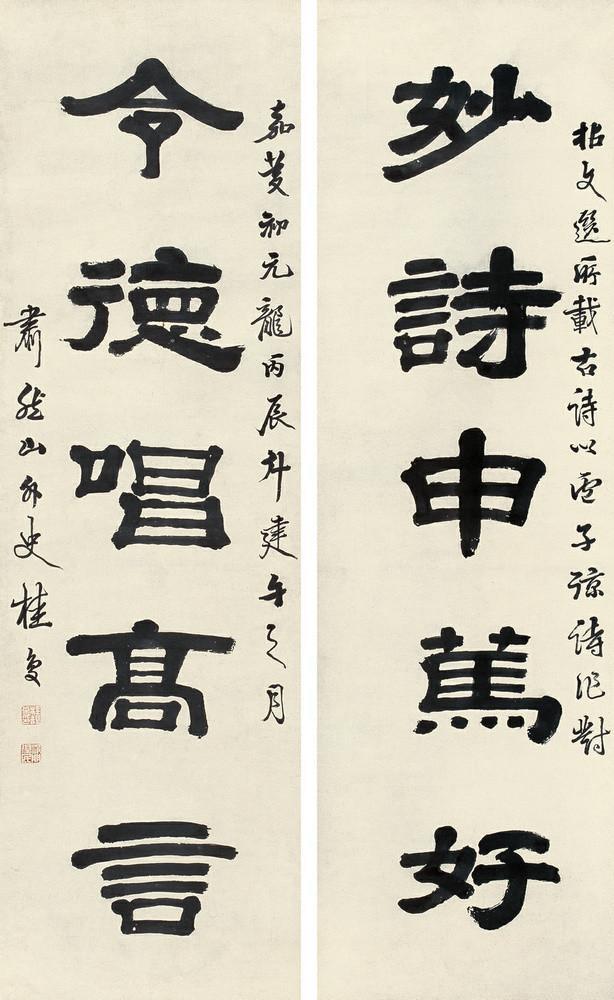 拈文選所載古詩以盧子諒詩作對
妙詩申篤好
嘉慶初元龍丙辰斗建午之月
令德唱髙言
肅然山外史桂复